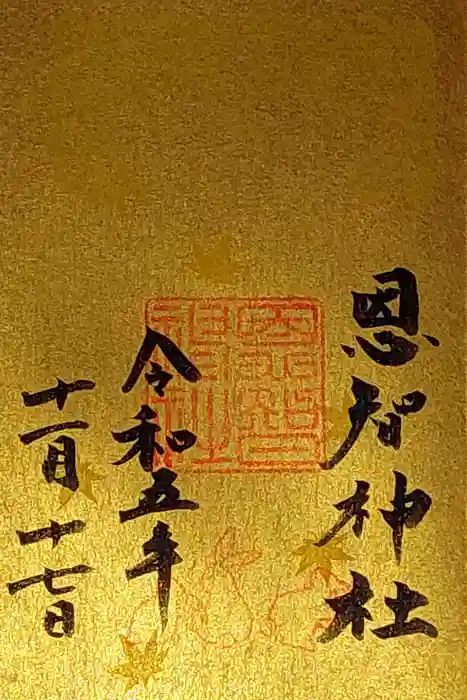 恩智神社
令和五年
十一月十七日